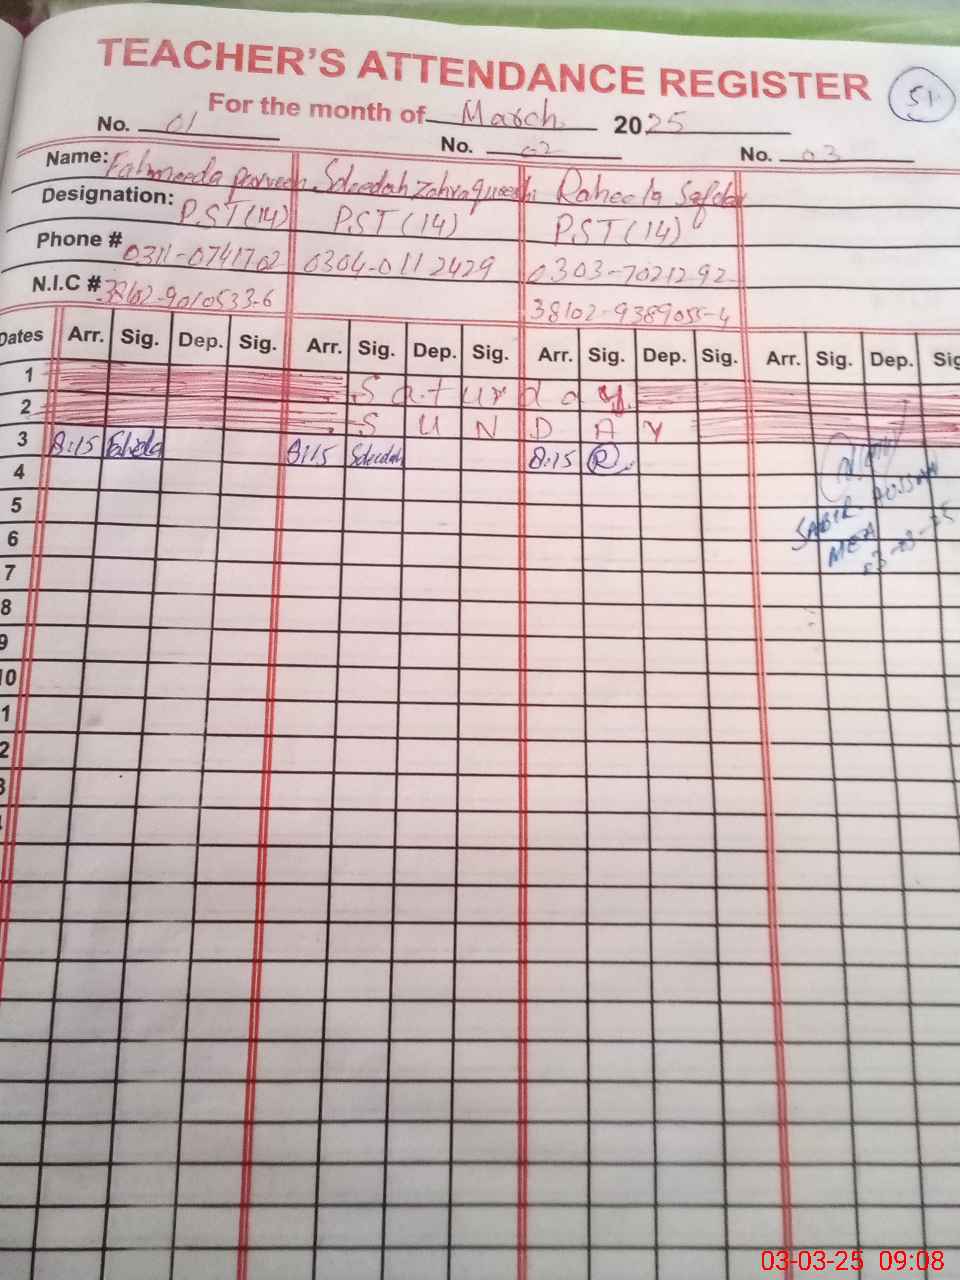 TEACHER'S ATTENDANCE REGISTER
51
For the month of March 2025
No. 01 No. 02 No. 03
Name: Fahmeeda parveen Sdeedah Zahra qureshi Raheela Safdar
Designation: P.S.T (14) P.S.T (14) P.S.T (14)
Phone # 0311-0741702 0304-0112429 0303-7021292
N.I.C # 38102-9010533-6 38102-9389055-4
Dates Arr. Sig. Dep. Sig. Arr. Sig. Dep. Sig. Arr. Sig. Dep. Sig. Arr. Sig. Dep. Sig
1 Saturday
2 SUNDAY
3 8:15 8:15 Sdeedah 8:15 R
4
5
SABIR HUSSAIN
6
MEA
03-03-25
7
8
9
10
1
2
3
03-03-25 09:08